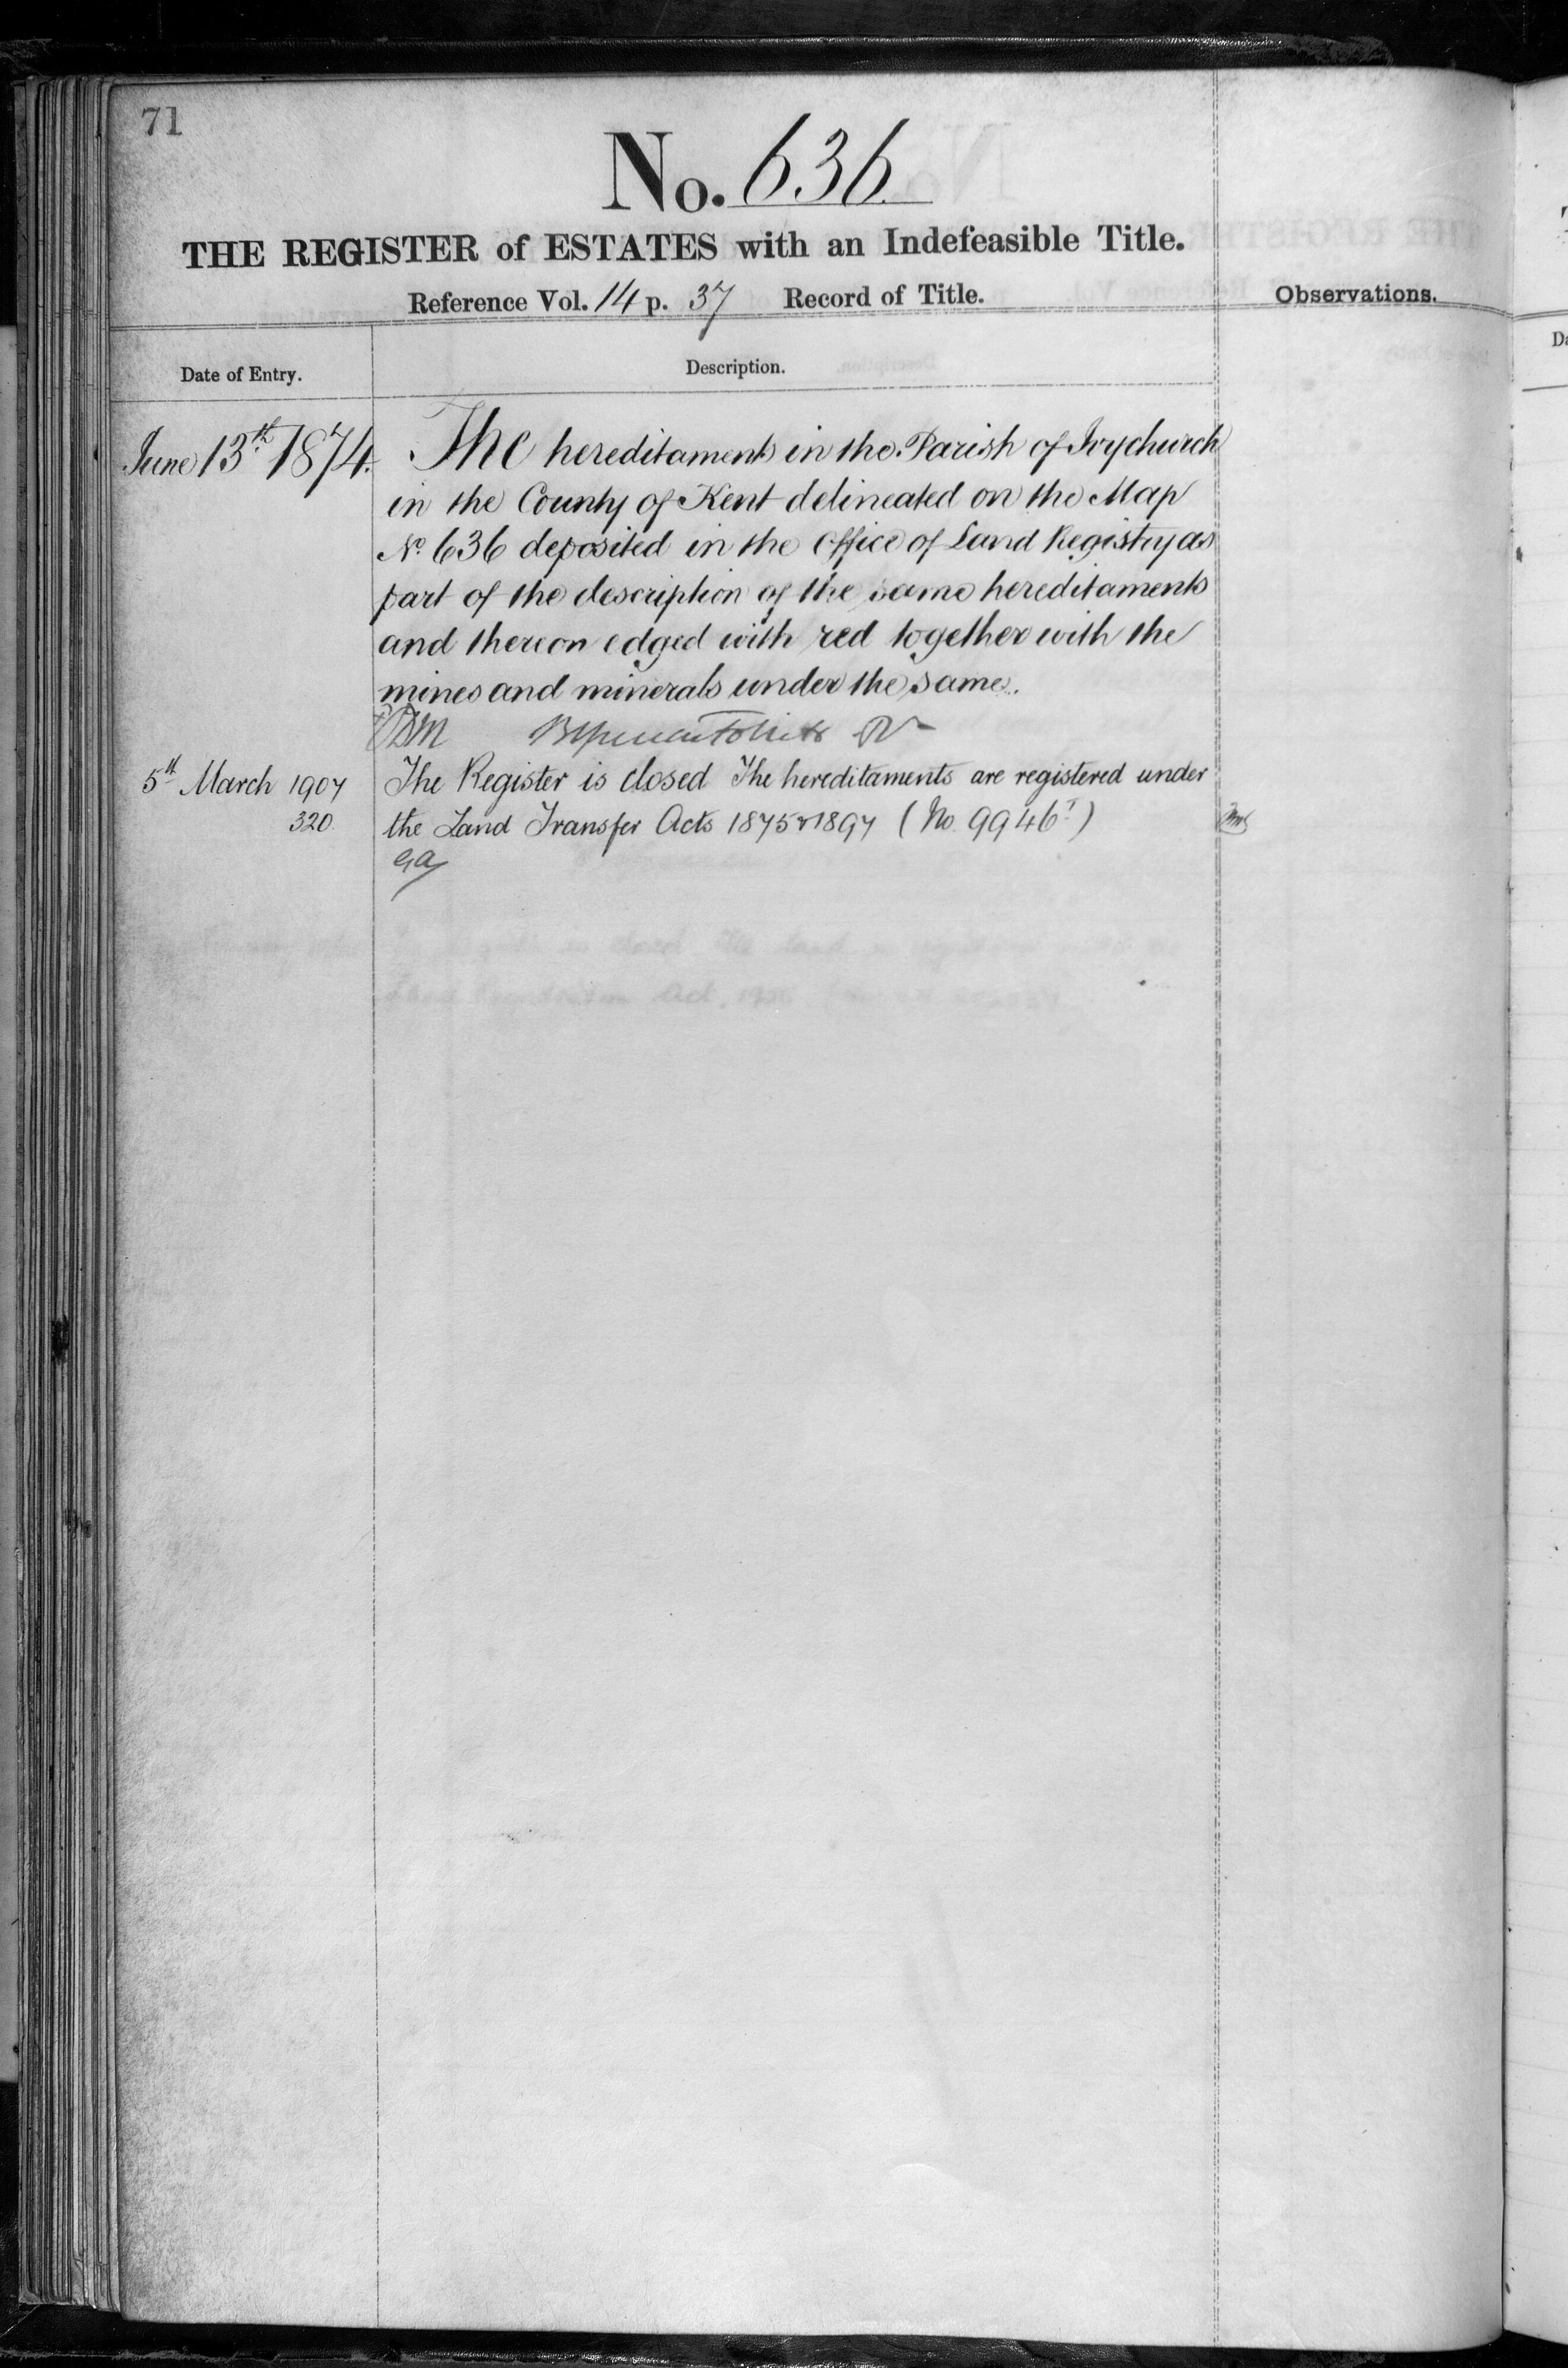 71
No. 636
THE REGISTER of ESTATES with an Indefeasible Title.
Reference Vol. 14 p. 37 Record of Title.
Observations.
Date of Entry.
Description.
June 13th 1874. The hereditaments in the Parish of Ivychurch
in the County of Kent delineated on the Map
No. 636 deposited in the office of Land Registry as
part of the description of the same hereditaments
and thereon edged with red together with the
mines and minerals under the same.
5th March 1907 The Register is closed The hereditaments are registered under
320 the Land Transfer Acts 1875 & 1897 (No. 9946)